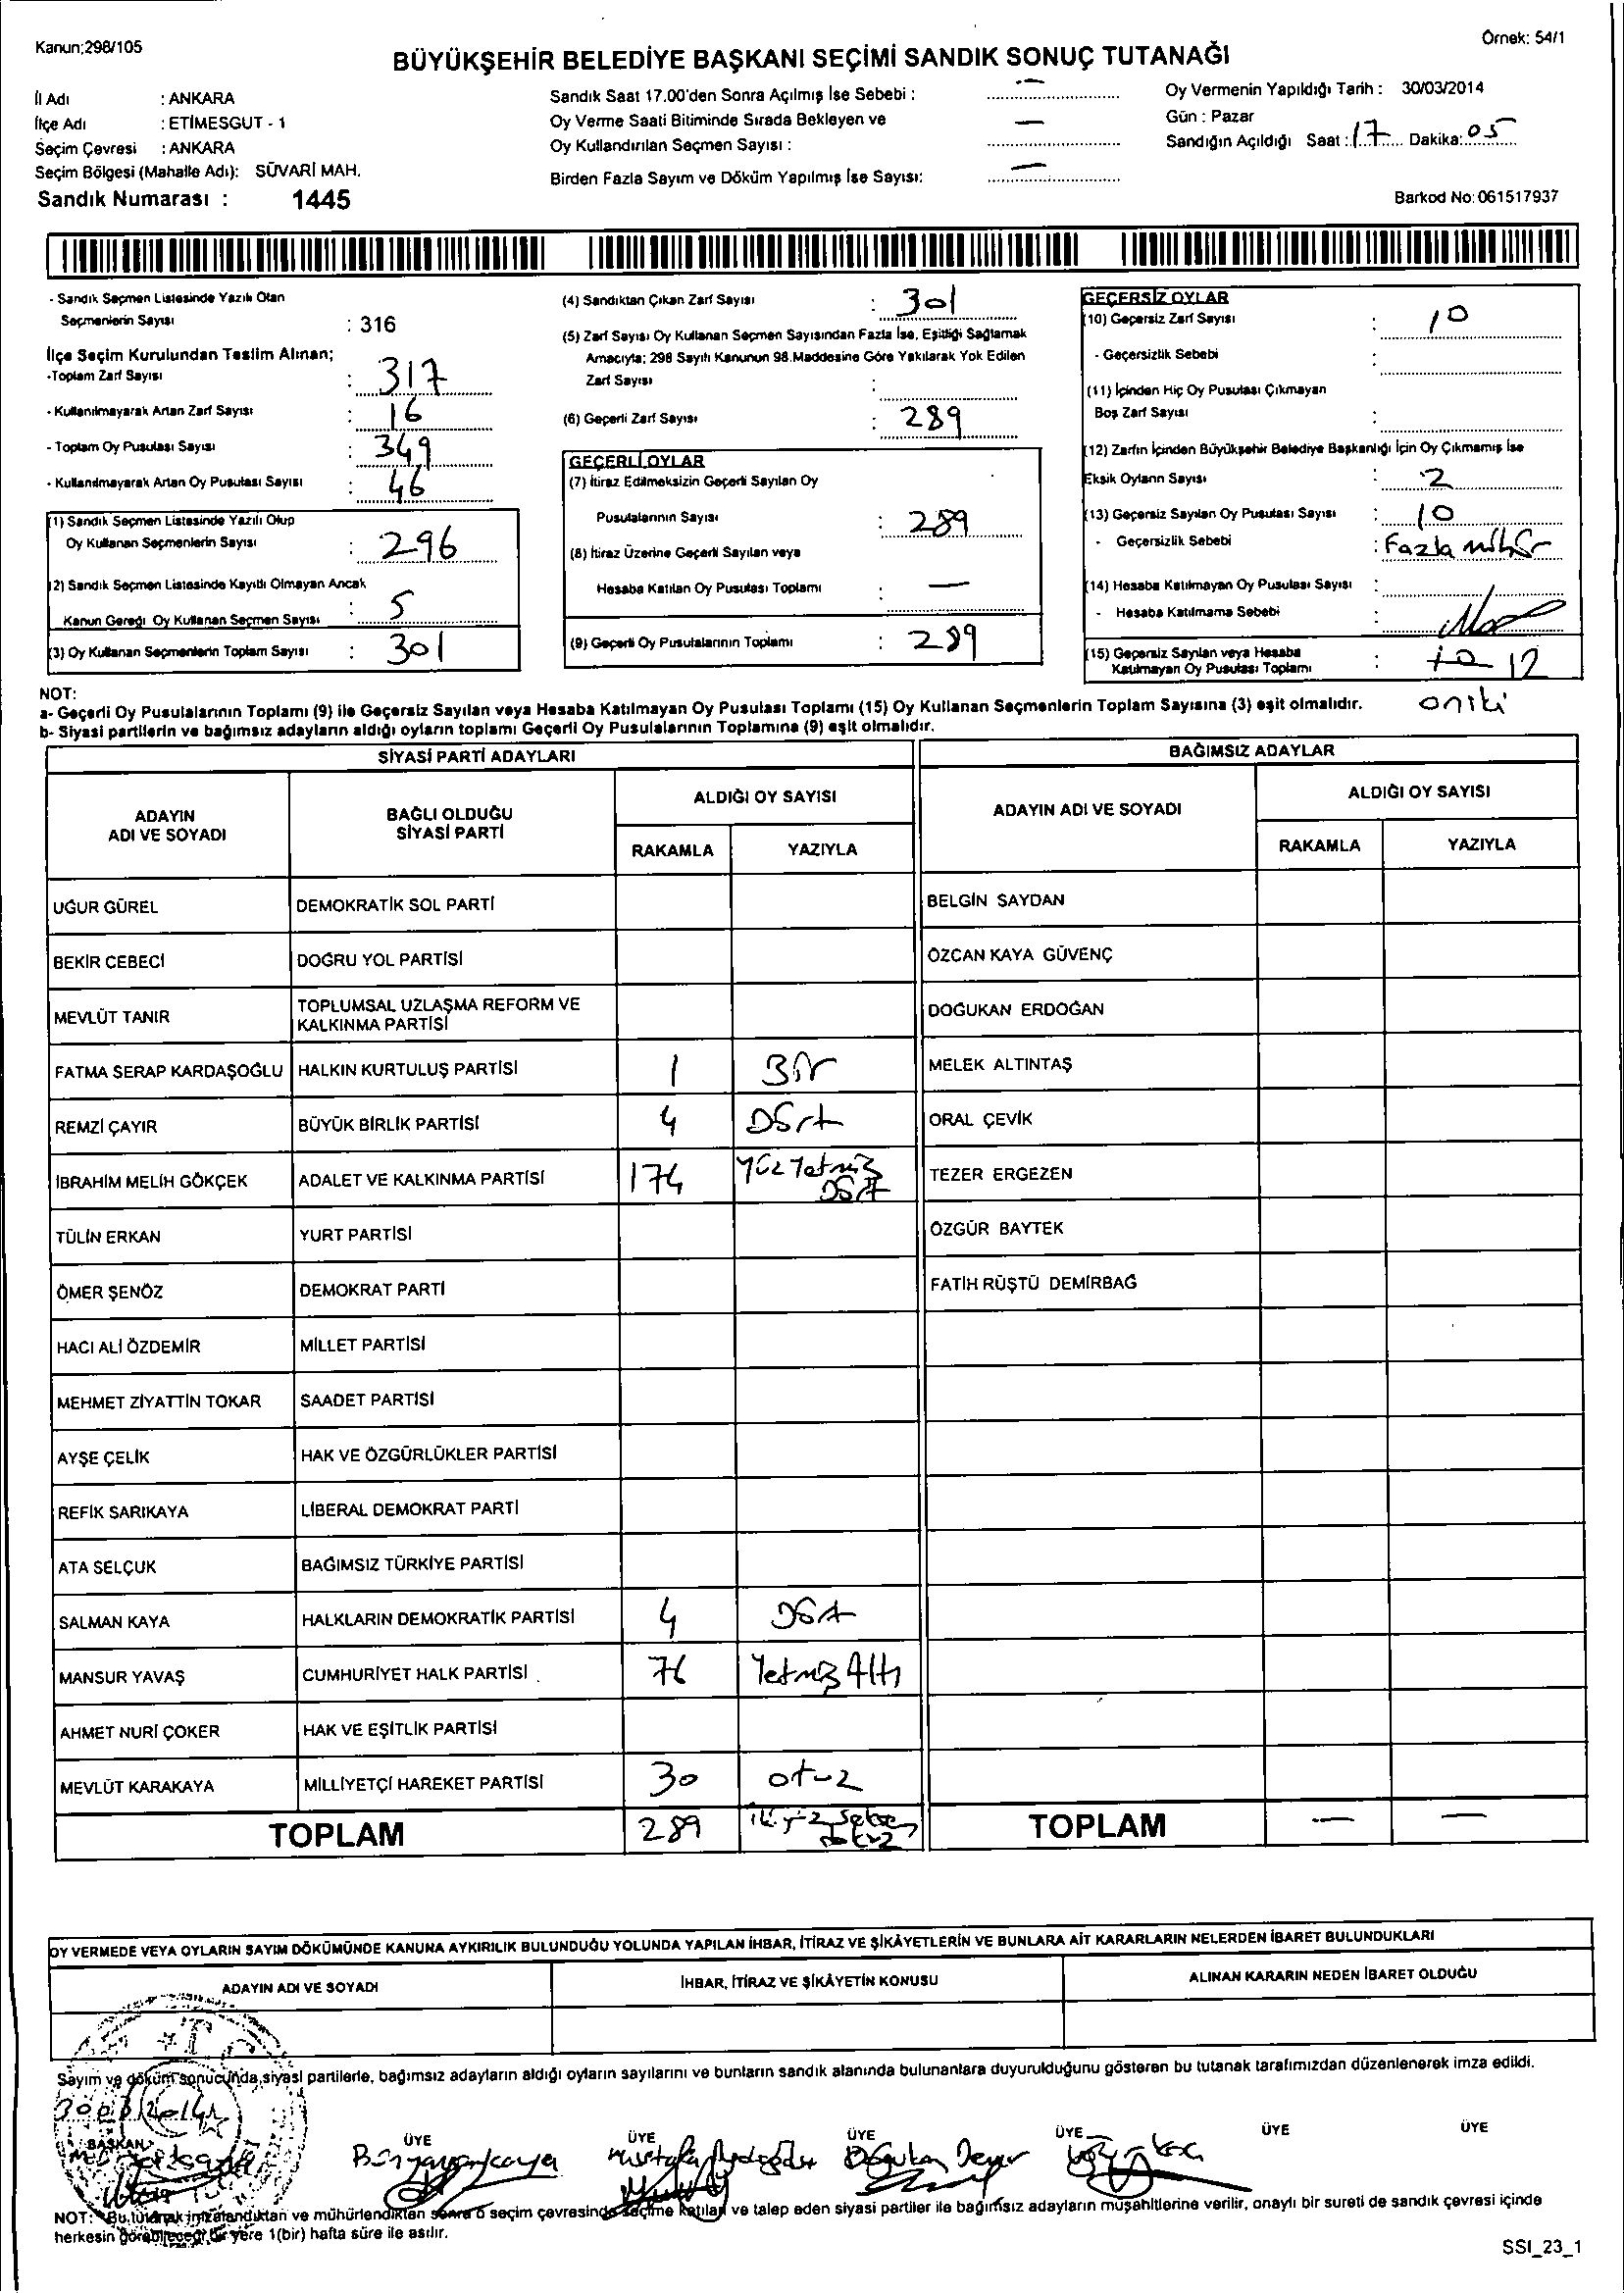 Kanun;298/105
Örnek: 54/1
BÜYÜKŞEHİR BELEDİYE BAŞKANI SEÇİMİ SANDIK SONUÇ TUTANAĞI
İl Adı : ANKARA
İlçe Adı : ETİMESGUT - 1
Seçim Çevresi : ANKARA
Seçim Bölgesi (Mahalle Adı): SÜVARİ MAH.
Sandık Numarası : 1445
Sandık Saat 17.00'den Sonra Açılmış İse Sebebi : —
Oy Verme Saati Bitiminde Sırada Bekleyen ve
Oy Kullandırılan Seçmen Sayısı : —
Birden Fazla Sayım ve Döküm Yapılmış İse Sayısı: —
Oy Vermenin Yapıldığı Tarih : 30/03/2014
Gün : Pazar
Sandığın Açıldığı Saat : 17 Dakika: 05
Barkod No: 061517937
- Sandık Seçmen Listesinde Yazılı Olan
Seçmenlerin Sayısı : 316
İlçe Seçim Kurulundan Teslim Alınan;
-Toplam Zarf Sayısı : 317
- Kullanılmayarak Artan Zarf Sayısı : 16
- Toplam Oy Pusulası Sayısı : 349
- Kullanılmayarak Artan Oy Pusulası Sayısı : 46
(1) Sandık Seçmen Listesinde Yazılı Olup
Oy Kullanan Seçmenlerin Sayısı : 296
(2) Sandık Seçmen Listesinde Kayıtlı Olmayan Ancak
Kanun Gereği Oy Kullanan Seçmen Sayısı : 5
(3) Oy Kullanan Seçmenlerin Toplam Sayısı : 301
(4) Sandıktan Çıkan Zarf Sayısı : 301
(5) Zarf Sayısı Oy Kullanan Seçmen Sayısından Fazla İse, Eşitliği Sağlamak
Amacıyla; 298 Sayılı Kanunun 98.Maddesine Göre Yakılarak Yok Edilen
Zarf Sayısı :
(6) Geçerli Zarf Sayısı : 289
GEÇERLİ OYLAR
(7) İtiraz Edilmeksizin Geçerli Sayılan Oy
Pusulalarının Sayısı : 289
(8) İtiraz Üzerine Geçerli Sayılan veya
Hesaba Katılan Oy Pusulası Toplamı : —
(9) Geçerli Oy Pusulalarının Toplamı : 289
GEÇERSİZ OYLAR
(10) Geçersiz Zarf Sayısı : 10
- Geçersizlik Sebebi :
(11) İçinden Hiç Oy Pusulası Çıkmayan
Boş Zarf Sayısı :
(12) Zarfın İçinden Büyükşehir Belediye Başkanlığı İçin Oy Çıkmamış İse
Eksik Oyların Sayısı : 2
(13) Geçersiz Sayılan Oy Pusulası Sayısı : 10
- Geçersizlik Sebebi : Fazla mühür
(14) Hesaba Katılmayan Oy Pusulası Sayısı :
- Hesaba Katılmama Sebebi :
(15) Geçersiz Sayılan veya Hesaba
Katılmayan Oy Pusulası Toplamı : 10 12
oniki
NOT:
a- Geçerli Oy Pusulalarının Toplamı (9) ile Geçersiz Sayılan veya Hesaba Katılmayan Oy Pusulası Toplamı (15) Oy Kullanan Seçmenlerin Toplam Sayısına (3) eşit olmalıdır.
b- Siyasi partilerin ve bağımsız adayların aldığı oyların toplamı Geçerli Oy Pusulalarının Toplamına (9) eşit olmalıdır.
SİYASİ PARTİ ADAYLARI
BAĞIMSIZ ADAYLAR
ADAYIN ADI VE SOYADI
BAĞLI OLDUĞU SİYASİ PARTİ
ALDIĞI OY SAYISI
RAKAMLA YAZIYLA
ADAYIN ADI VE SOYADI
ALDIĞI OY SAYISI
RAKAMLA YAZIYLA
UĞUR GÜREL DEMOKRATİK SOL PARTİ BELGİN SAYDAN
BEKİR CEBECİ DOĞRU YOL PARTİSİ ÖZCAN KAYA GÜVENÇ
MEVLÜT TANIR TOPLUMSAL UZLAŞMA REFORM VE KALKINMA PARTİSİ DOĞUKAN ERDOĞAN
FATMA SERAP KARDAŞOĞLU HALKIN KURTULUŞ PARTİSİ 1 Bir MELEK ALTINTAŞ
REMZİ ÇAYIR BÜYÜK BİRLİK PARTİSİ 4 Dört ORAL ÇEVİK
İBRAHİM MELİH GÖKÇEK ADALET VE KALKINMA PARTİSİ 174 Yüz Yetmiş Dört TEZER ERGEZEN
TÜLİN ERKAN YURT PARTİSİ ÖZGÜR BAYTEK
ÖMER ŞENÖZ DEMOKRAT PARTİ FATİH RÜŞTÜ DEMİRBAĞ
HACI ALİ ÖZDEMİR MİLLET PARTİSİ
MEHMET ZİYATTİN TOKAR SAADET PARTİSİ
AYŞE ÇELİK HAK VE ÖZGÜRLÜKLER PARTİSİ
REFİK SARIKAYA LİBERAL DEMOKRAT PARTİ
ATA SELÇUK BAĞIMSIZ TÜRKİYE PARTİSİ
SALMAN KAYA HALKLARIN DEMOKRATİK PARTİSİ 4 Dört
MANSUR YAVAŞ CUMHURİYET HALK PARTİSİ 76 Yetmiş Altı
AHMET NURİ ÇOKER HAK VE EŞİTLİK PARTİSİ
MEVLÜT KARAKAYA MİLLİYETÇİ HAREKET PARTİSİ 30 otuz
TOPLAM 289 ikiyüz seksen dokuz TOPLAM — —
OY VERMEDE VEYA OYLARIN SAYIM DÖKÜMÜNDE KANUNA AYKIRILIK BULUNDUĞU YOLUNDA YAPILAN İHBAR, İTİRAZ VE ŞİKÂYETLERİN VE BUNLARA AİT KARARLARIN NELERDEN İBARET BULUNDUKLARI
ADAYIN ADI VE SOYADI İHBAR, İTİRAZ VE ŞİKÂYETİN KONUSU ALINAN KARARIN NEDEN İBARET OLDUĞU
Sayım ve döküm sonucunda,siyasi partilerle, bağımsız adayların aldığı oyların sayılarını ve bunların sandık alanında bulunanlara duyurulduğunu gösteren bu tutanak tarafımızdan düzenlenerek imza edildi.
BAŞKAN ÜYE ÜYE ÜYE ÜYE ÜYE ÜYE
NOT: Bu tutanak imzalandıktan ve mühürlendikten sonra o seçim çevresinde seçime katılan ve talep eden siyasi partiler ile bağımsız adayların müşahitlerine verilir, onaylı bir sureti de sandık çevresi içinde
herkesin görebileceği bir yere 1(bir) hafta süre ile asılır.
SSI_23_1